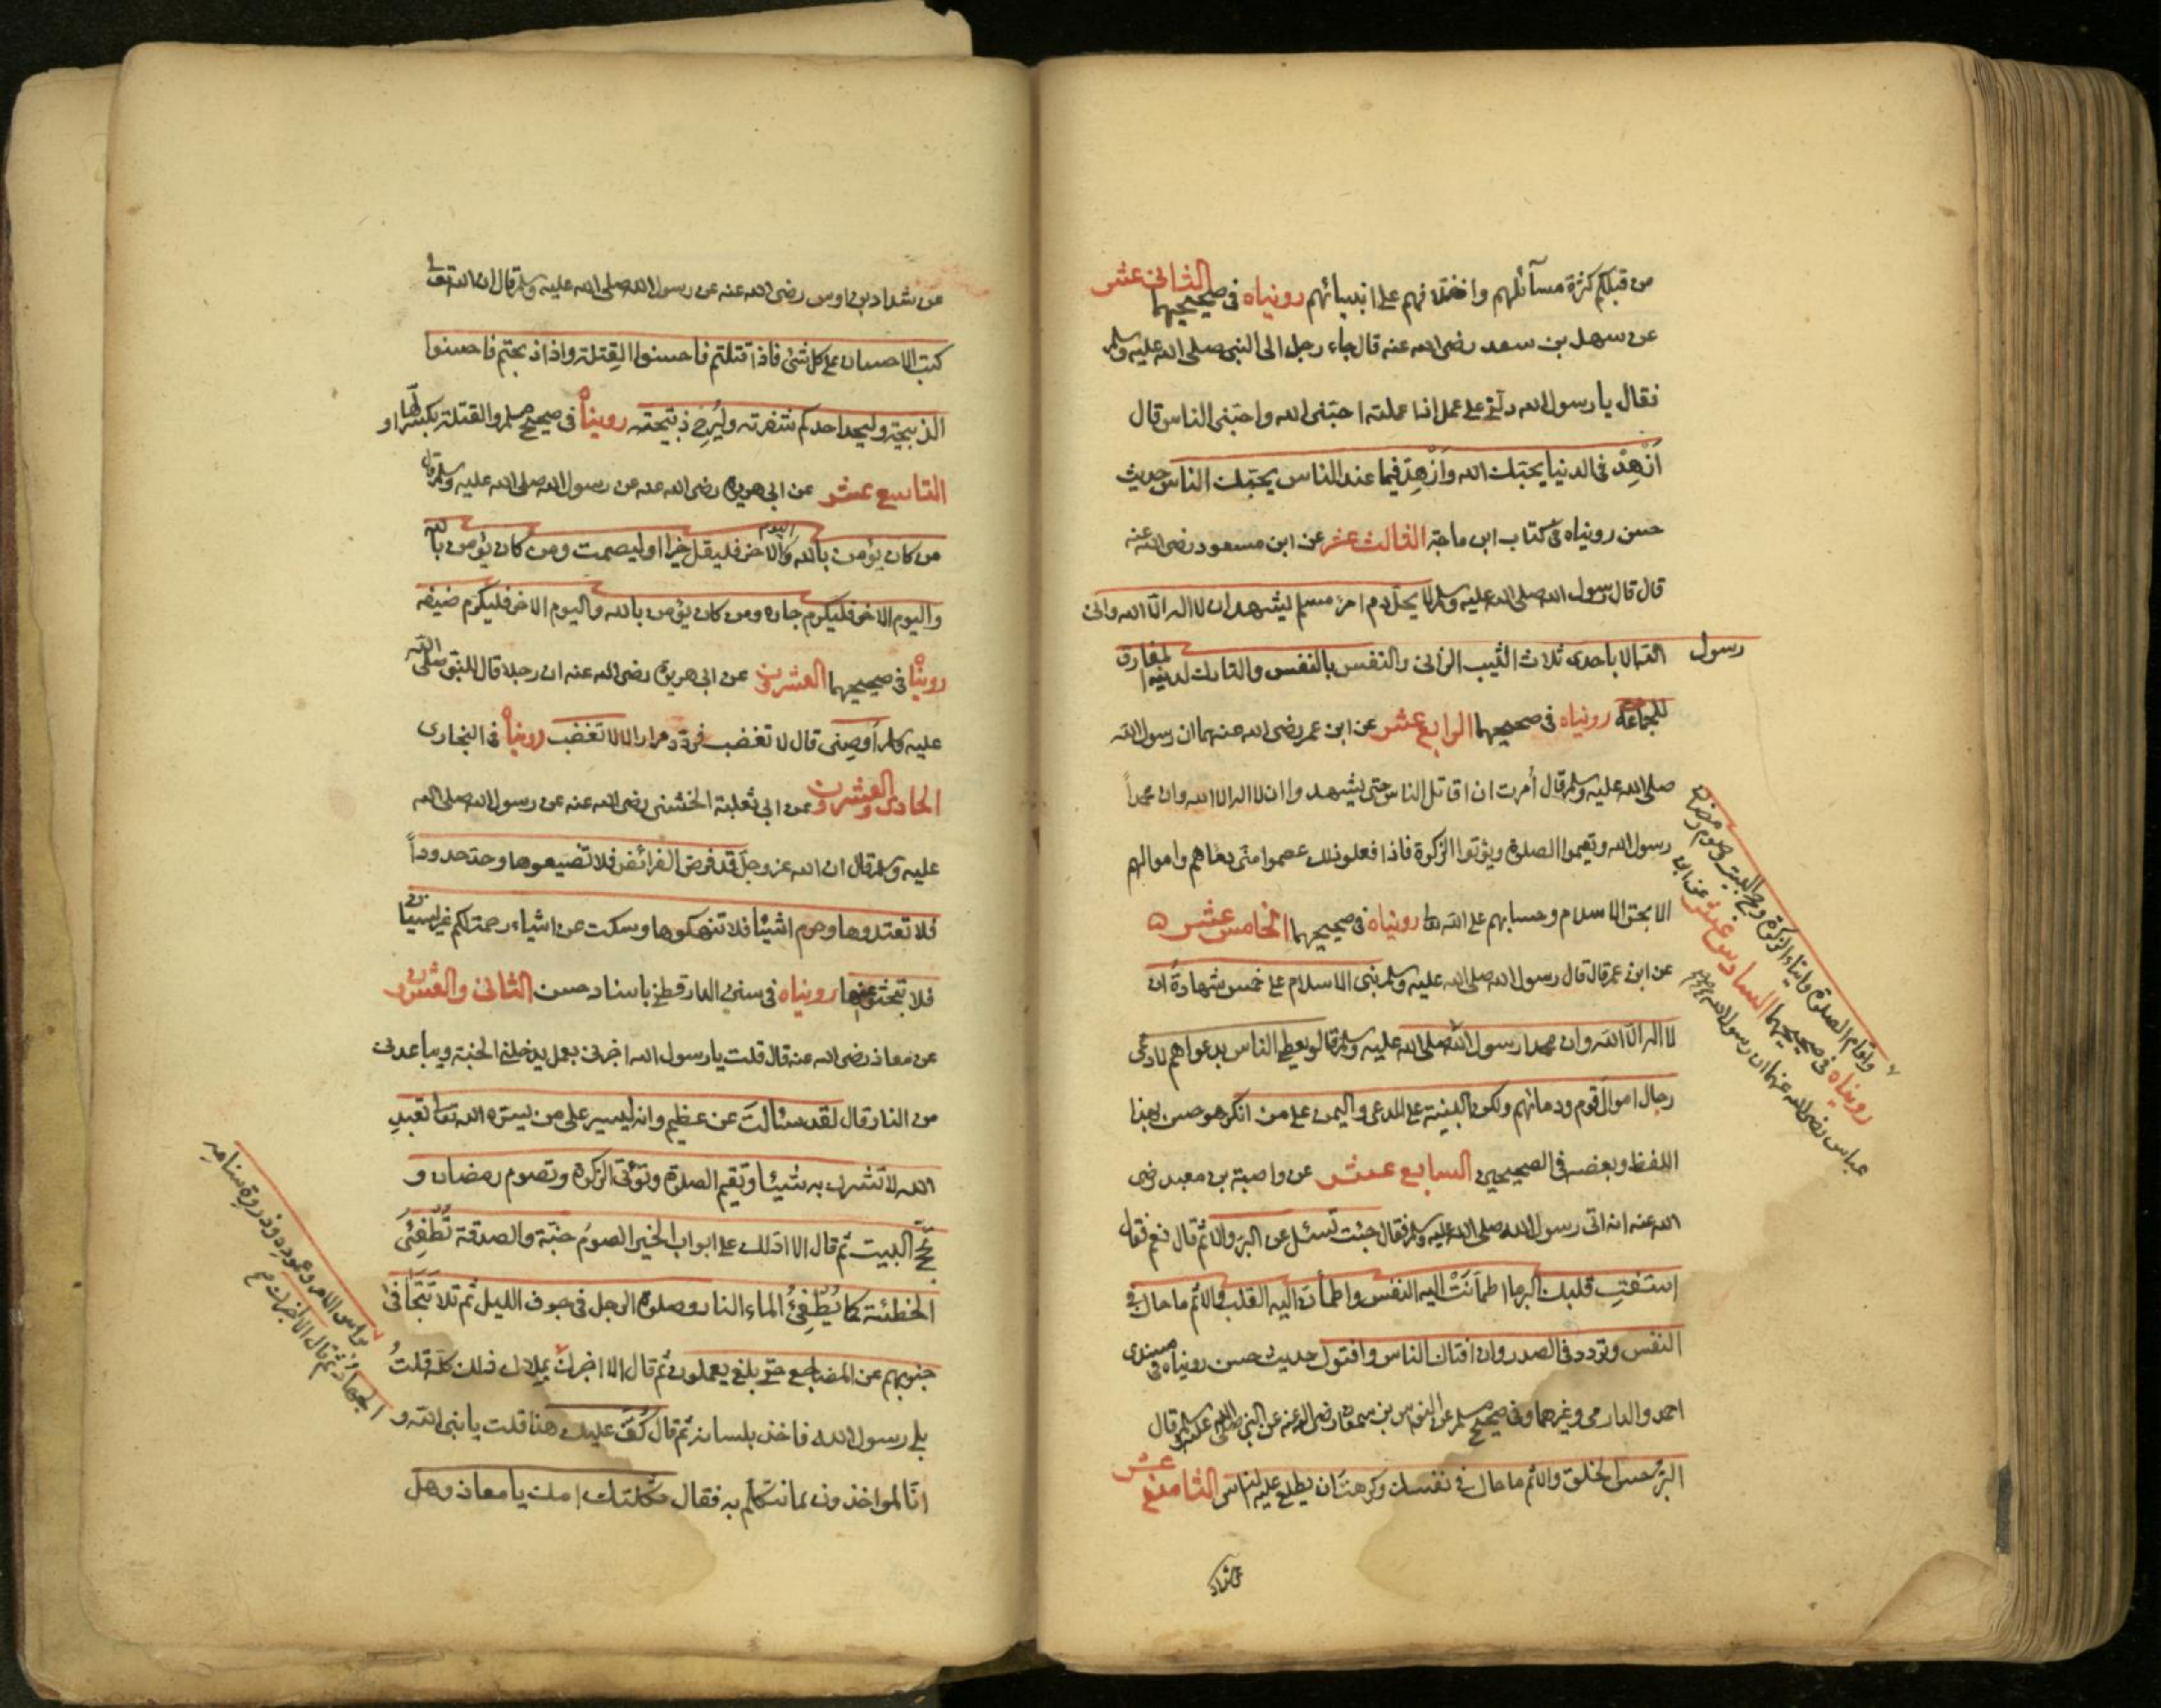 من قبلكم كثرة مسآئلهم واختلافهم على انبيائهم رويناه فى صحيحيهما الثانى عشر
عن سهل بن سعد رضى الله عنه قال جاء رجل الى النبى صلى الله عليه وسلم
فقال يا رسول الله دلّنى على عمل اذا عملته احبّنى الله واحبّنى الناس قال
اَزْهِدْ فى الدنيا يحبّك الله وَازْهِدْ فيما عند الناس يحبّك الناس حديث
حسن رويناه فى كتاب ابن ماجة الثالث عشر عن ابن مسعود رضى الله عنه
قال قال رسول الله صلى الله عليه وسلم لا يحلّ دم امرء مسلم يشهد ان لا اله الّا الله وانى
رسول الله الا باحدى ثلاث الثيب الزانى والنفس بالنفس والتارك لدينه المفارق
للجماعة رويناه فى صحيحيهما الرابع عشر عن ابن عمر رضى الله عنهما ان رسول الله
صلى الله عليه وسلم قال أمرت ان اقاتل الناس حتى يشهدوا ان لا اله الا الله وان محمداً
رسول الله ويقيموا الصلوة ويؤتوا الزكوة فاذا فعلو ذلك عصموا منّى دماهم واموالهم
الا بحق الاسلام وحسابهم على الله تعا رويناه فى صحيحيهما الخامس عشر
عن ابن عمر قال قال رسول الله صلى الله عليه وسلم بنى الاسلام على خمس شهادة ان
لا اله الّا الله وان محمدا رسول الله صلى الله عليه وسلم قال لو يعطى الناس بدعواهم لادعى
رجال اموال قوم ودمائهم ولكن البينة على المدعى واليمين على من انكر هو حسن بهذا
اللفظ وبعضه فى الصحيحين السابع عشر عن وابصة بن معبد رضى
الله عنه انه اتى رسول الله صلى الله عليه وسلم فقال جئت تسئل عن البر والاثم قال نعم فقال
استفتِ قلبك البر ما اطمأنَّتْ اليه النفس واطمأن اليه القلب والاثم ما حاك فى
النفس وتردد فى الصدر وان افتاك الناس وافتوك حديث حسن رويناه فى مسندى
احمد والدارمى وغيرهما وفى صحيح مسلم عن النواس بن سمعان رضى الله عنه عن النبى صلى الله عليه وسلم قال
البرُّ حسن الخلق والاثم ما حاك فى نفسك وكرهت ان يطلع عليه الناس الثامن عشر
واقام الصلوة وايتاء الزكوة وحج البيت وصوم رمضان
رويناه فى صحيحيهما السادس عشر عن ابن
عباس رضى الله عنهما ان رسول الله صلعم
عن شداد بن اوس رضى الله عنه عن رسول الله صلى الله عليه وسلم قال ان الله تعالى
كتب الاحسان على كل شئ فاذا قتلتم فاحسنوا القِتلة واذا ذبحتم فاحسنوا
الذبيحة وليحد احدكم شفرته وليُرِحْ ذبيحته رويناه فى صحيح مسلم والقتلة بكسر اولها
التاسع عشر عن ابى هريرة رضى الله عنه عن رسول الله صلى الله عليه وسلم قال
من كان يؤمن بالله واليوم الاخر فليقل خيرا او ليصمت ومن كان يؤمن بالله
واليوم الاخر فليكرم جاره ومن كان يؤمن بالله واليوم الاخر فليكرم ضيفه
رويناه فى صحيحيهما العشرون عن ابى هريرة رضى الله عنه ان رجلا قال للنبى صلى الله
عليه وسلم أوصِنى قال لا تغضب فردّد مرارا لا لا تغضب رويناه فى البخارى
الحادى والعشرون عن ابى ثعلبة الخشنى رضى الله عنه عن رسول الله صلى الله
عليه وسلم قال ان الله عز وجل قد فرض الفرائض فلا تضيعوها وحد حدوداً
فلا تعتدوها وحرم اشيئا فلا تنهكوها وسكت عن اشياء رحمة لكم غير نسيان
فلا تبحثو عنها رويناه فى سنن الدارقطنى باسناد حسن الثانى والعشرون
عن معاذ رضى الله عنه قال قلت يا رسول الله اخبرنى بعمل يدخلنى الجنة ويباعدنى
من النار قال لقد سئالتَ عن عظيم وانه ليسير على من يسّره الله تعا تعبدِ
الله لا تشرك به شيئا وتقيم الصلوة وتؤتى الزكوة وتصوم رمضان و
تحجّ البيت ثم قال الا ادلك على ابواب الخير الصومُ جنّة والصدقة تُطْفِئُ
الخطئة كما يُطْفِئُ الماء النار وصلوة الرجل فى جوف الليل ثم تلا تَتَجافى
جنوبهم عن المضاجع حتى بلغ يعملون ثم قال الا اخبرك بملاك ذلك كله قلتُ
بلى رسول الله فاخذ بلسانه ثم قال كُفّ عليك هذا قلت يا نبى الله و
انّا لمواخذون بما نتكلّم به فقال ثكلتك امك يا معاذ وهل
براس الامر وعمودِه وذروة سنامهِ
الجهاد ثم قال الا اخبرك